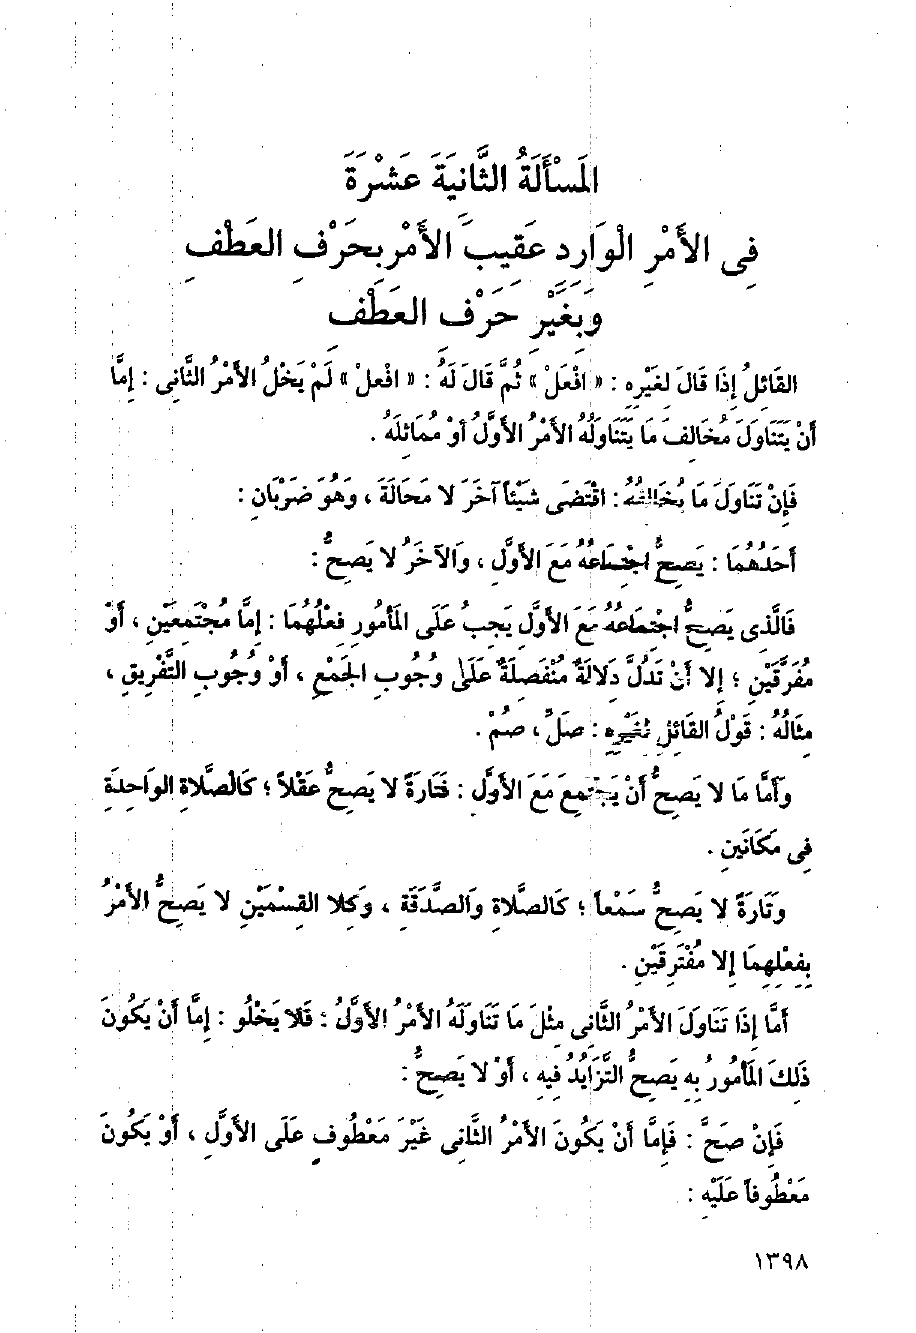 المَسْأَلَةُ الثَّانِيَةَ عَشْرَةَ
فِى الأَمْرِ الْوَارِدِ عَقِيبَ الأَمْرِ بِحَرْفِ العَطْفِ
وَبِغَيْرِ حَرْفِ العَطْفِ
القَائِلُ إِذَا قَالَ لِغَيْرِهِ : « افْعَلْ » ثُمَّ قَالَ لَهُ : « افْعلْ » لَمْ يَخْلُ الأَمْرُ الثَّانِى : إِمَّا
أَنْ يَتَنَاوَلَ مُخَالِفَ مَا يَتَنَاوَلُهُ الأَمْرُ الأَوَّلُ أَوْ مُمَاثِلَهُ .
فَإِنْ تَنَاوَلَ مَا يُخَالِفُهُ : اقْتَضَى شَيْئاً آخَرَ لا مَحَالَةَ ، وَهُوَ ضَرْبَانِ :
أَحَدُهُمَا : يَصِحُّ اجْتِمَاعُهُ مَعَ الأَوَّلِ ، وَالآخَرُ لا يَصِحُّ :
فَالَّذِى يَصِحُّ اجْتِمَاعُهُ مَعَ الأَوَّلِ يَجِبُ عَلَى المَأْمُورِ فِعْلُهُمَا : إِمَّا مُجْتَمِعَيْنِ ، أَوْ
مُفَرَّقَيْنِ ؛ إِلا أَنْ تَدُلَّ دَلالَةٌ مُنْفَصِلَةٌ عَلَى وُجُوبِ الجَمْعِ ، أَوْ وُجُوبِ التَّفْرِيقِ ،
مِثَالُهُ : قَوْلُ القَائِلِ لِغَيْرِهِ : صَلِّ ، صُمْ .
وَأَمَّا مَا لا يَصِحُّ أَنْ يَجْتَمِعَ مَعَ الأَوَّلِ : فَتَارَةً لا يَصِحُّ عَقْلاً ؛ كَالصَّلاةِ الوَاحِدَةِ
فِى مَكَانَينِ .
وَتَارَةً لا يَصِحُّ سَمْعاً ؛ كَالصَّلاةِ وَالصَّدَقَةِ ، وَكِلا القِسْمَيْنِ لا يَصِحُّ الأَمْرُ
بِفِعْلِهِمَا إِلا مُفْتَرِقَيْنِ .
أَمَّا إِذَا تَنَاوَلَ الأَمْرُ الثَّانِى مِثْلَ مَا تَنَاوَلَهُ الأَمْرُ الأَوَّلُ : فَلا يَخْلُو : إِمَّا أَنْ يَكُونَ
ذَلِكَ المَأْمُورُ بِهِ يَصِحُّ التَّزَايُدُ فِيهِ ، أَوْ لا يَصِحُّ :
فَإِنْ صَحَّ : فَإِمَّا أَنْ يَكُونَ الأَمْرُ الثَّانِى غَيْرَ مَعْطُوفٍ عَلَى الأَوَّلِ ، أَوْ يَكُونَ
مَعْطُوفاً عَلَيْهِ :
١٣٩٨